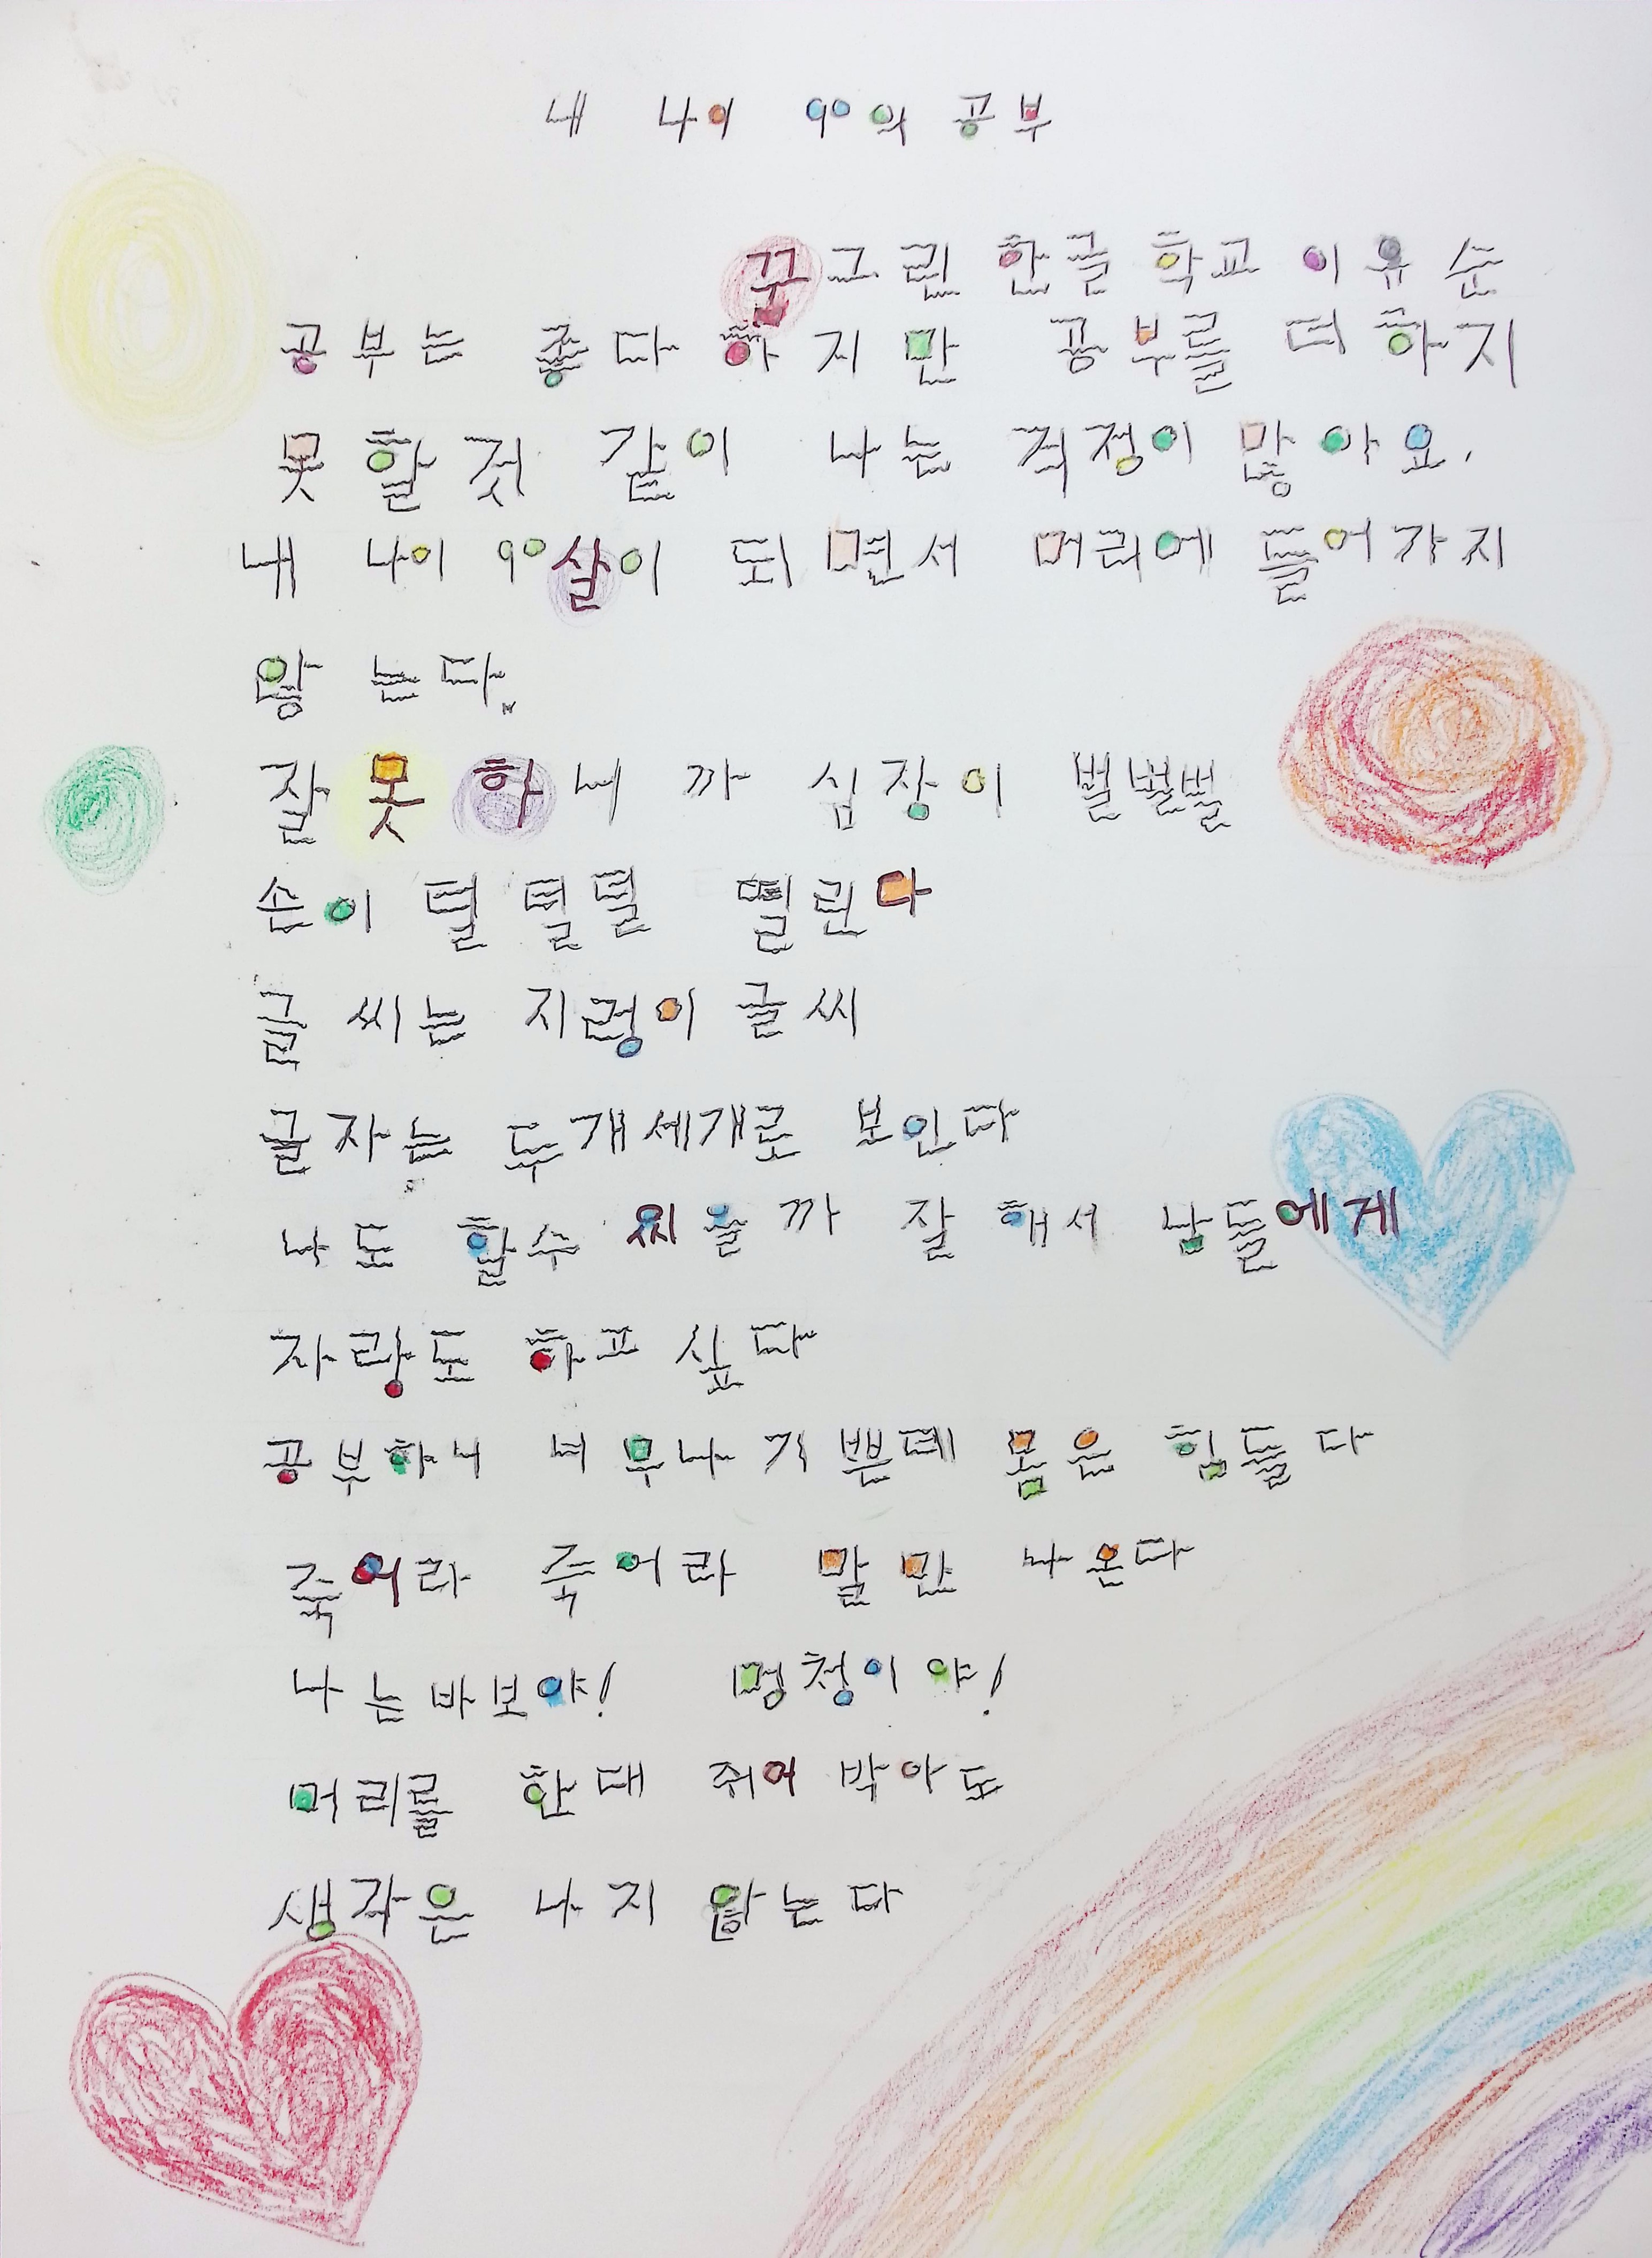 내 나이 90의 공부
꾸그린 한글 학교 이유순
공부는 좋다 하지만 공부를 더 하지
못할것 같이 나는 걱정이 많아요.
내 나이 90살이 되면서 머리에 들어가지
않는다.
잘못하니까 심장이 벌벌벌
손이 덜덜덜 떨린다
글씨는 지렁이 글씨
글자는 두개세개로 보인다
나도 할수 씨을까 잘해서 남들에게
자랑도 하고 싶다
공부하니 너무나 기쁜데 몸은 힘들다
죽어라 죽어라 말만 나온다
나는바보야! 멍청이야!
머리를 한대 쥐어 박아도
생각은 나지 않는다